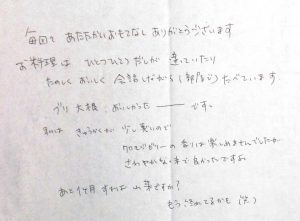 毎回も あたたかいおもてなし ありがとうございます
お料理は ひとつひとつ だしが 違っていたり
たのしく おいしく 会話しながら(部屋で)たべています
ブリ大根、おいしかった ―― です。
私は きゅうかくが 少し悪いので
の香りは楽しめませんでしたが
さわやかな で良かったですよ
あと1ヶ月 すれば 山菜ですか?
もう 出てるかも(笑)